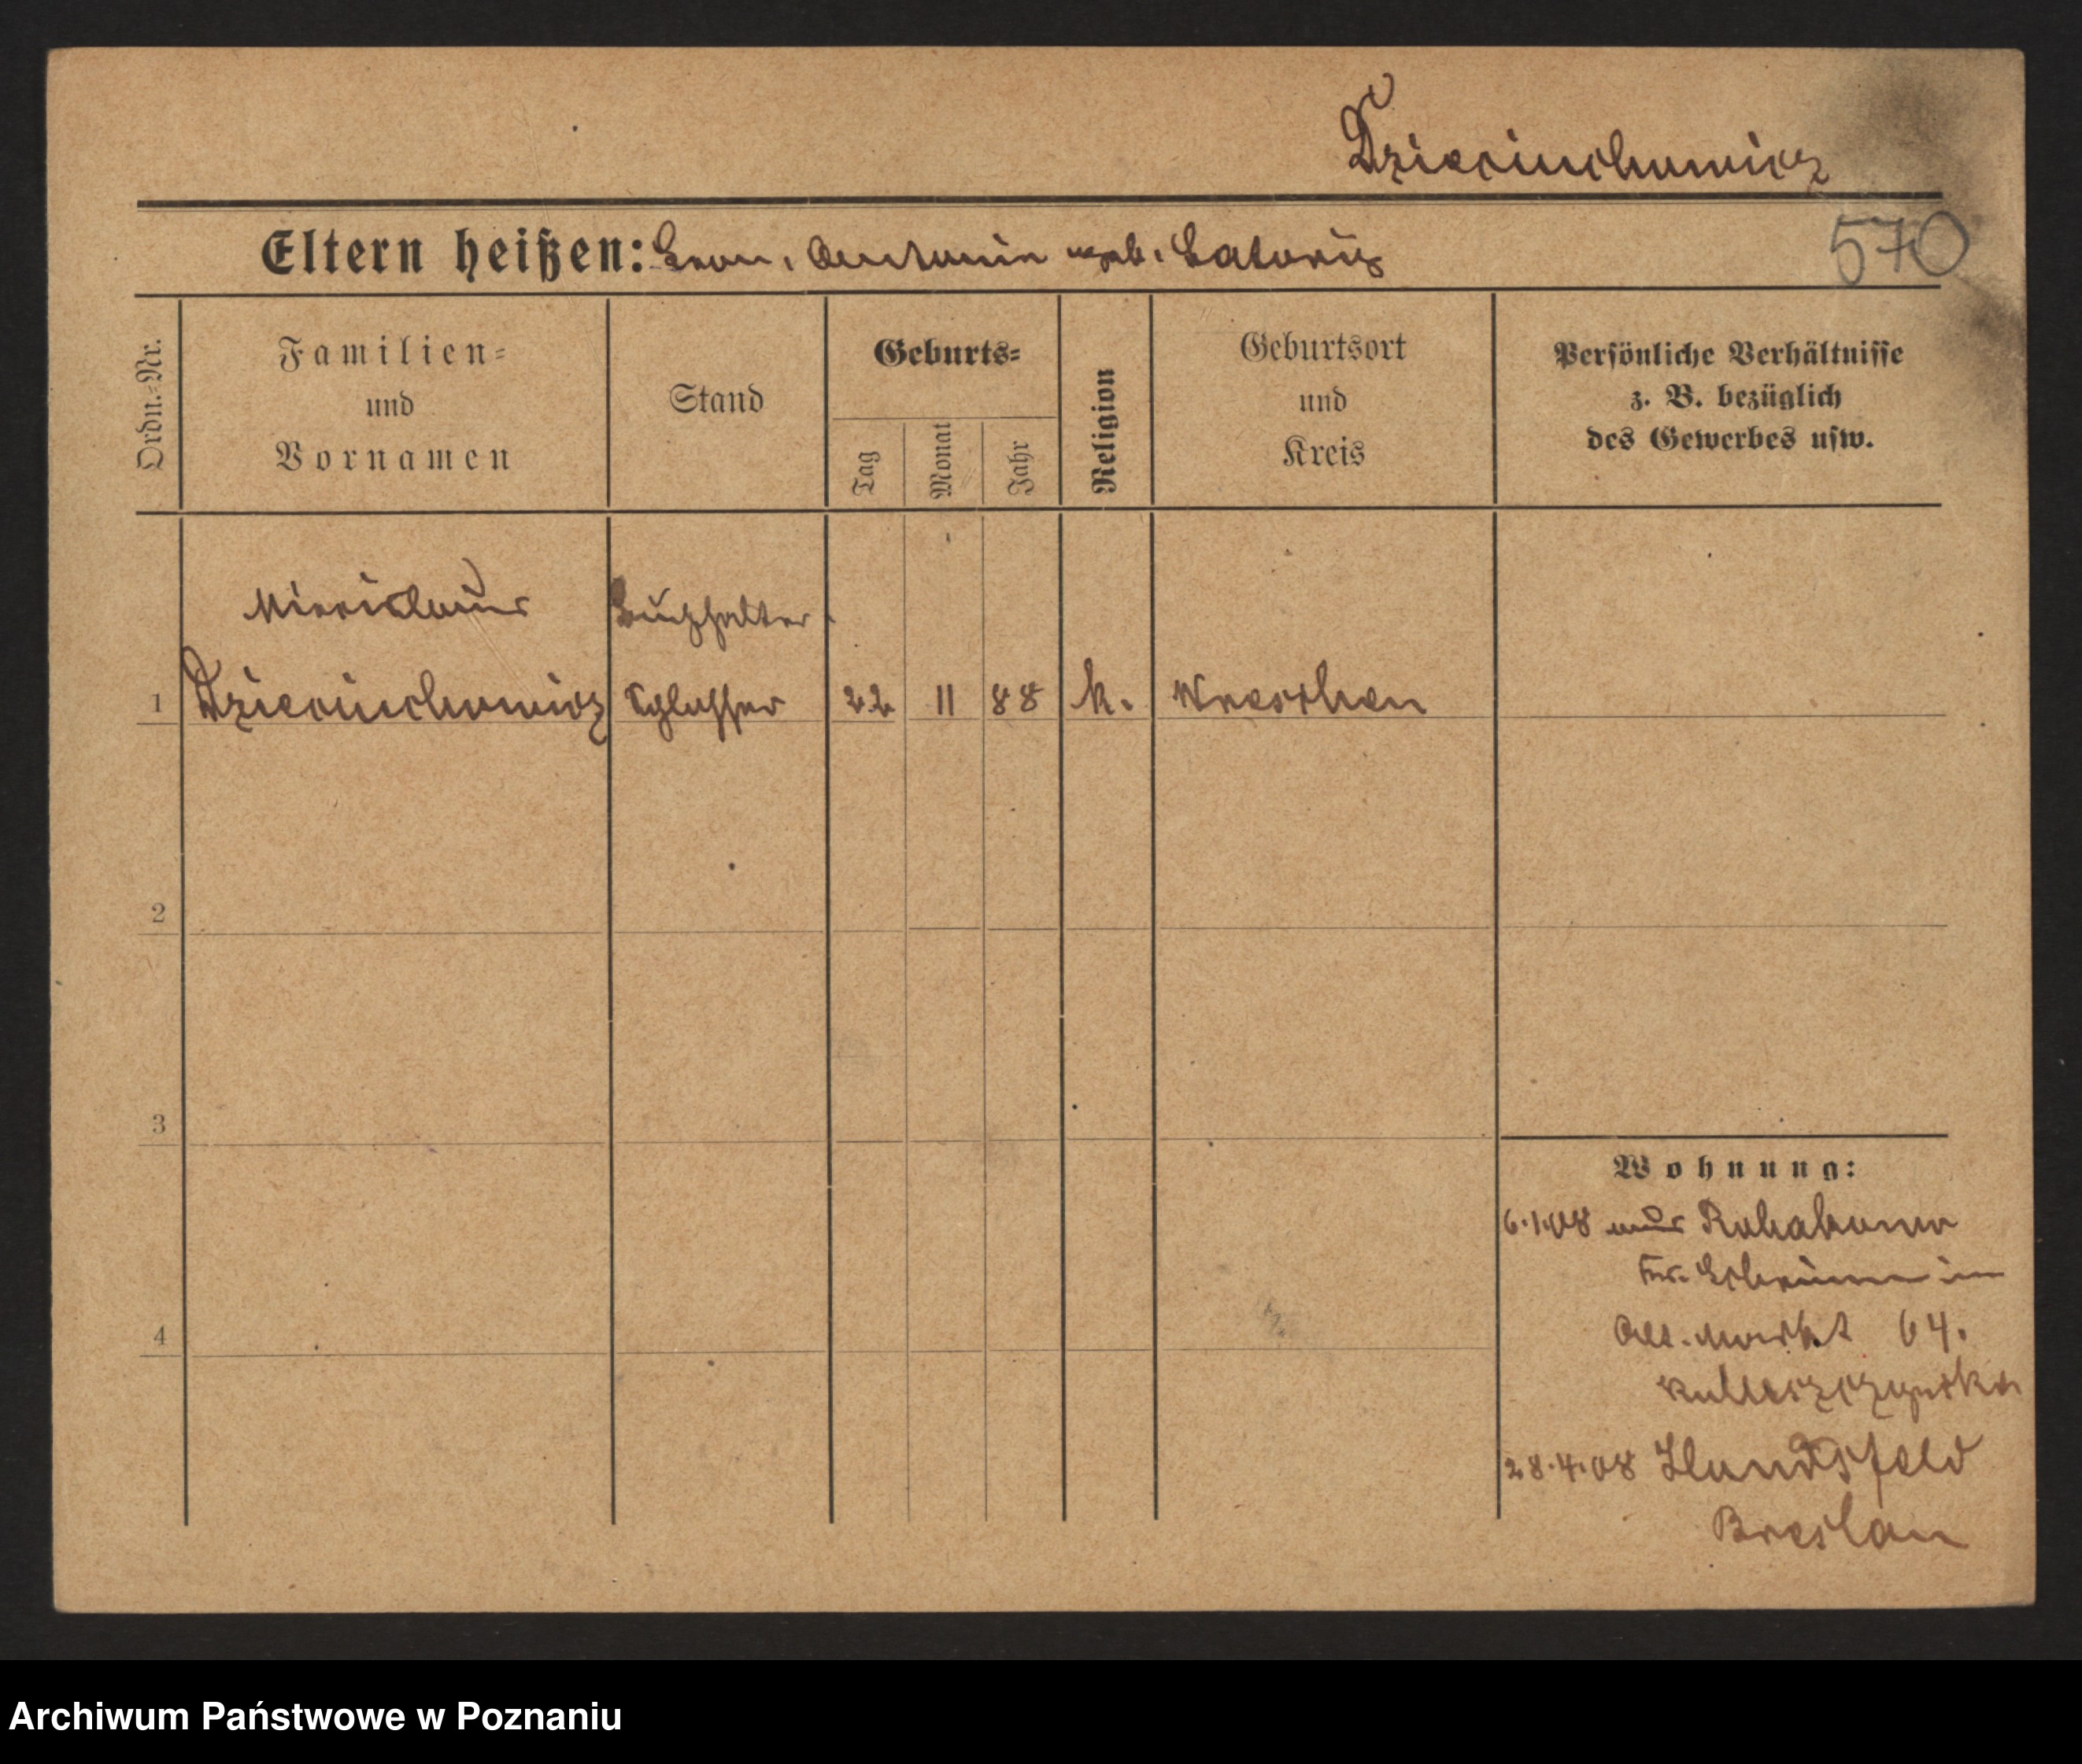 Dziecinchowicz
Eltern heißen: Leon, Antonie geb. Latovis
570
Ordn.-Nr.
Familien-
und
Vornamen
Stand
Geburts-
Tag
Monat
Jahr
Religion
Geburtsort
und
Kreis
Persönliche Verhältnisse
z. B. bezüglich
des Gewerbes usw.
Buchhalter
1 Dziecinchowicz Schlosser 22 11 88 k. Wreschen
2
3
4
Wohnung:
6.1.08 aus
Alt. Markt 64.
28.4.08 Hundsfeld
Breslau
Archiwum Państwowe w Poznaniu